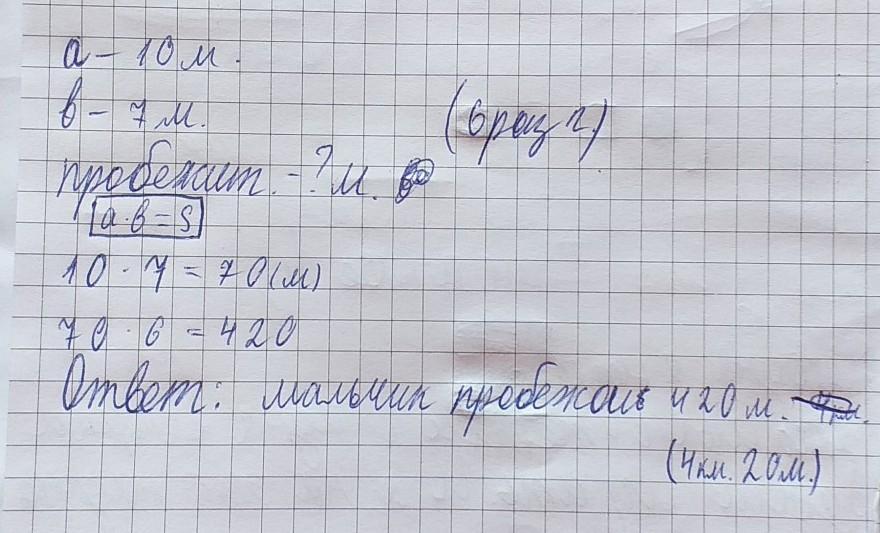 а – 10 м.
в – 7 м.
(6 раз г)
пробежит. – ? м.
а · в = S
10 · 7 = 70 (м)
70 · 6 = 420
Ответ: мальчик пробежал 420 м.
(4 км. 20 м.)